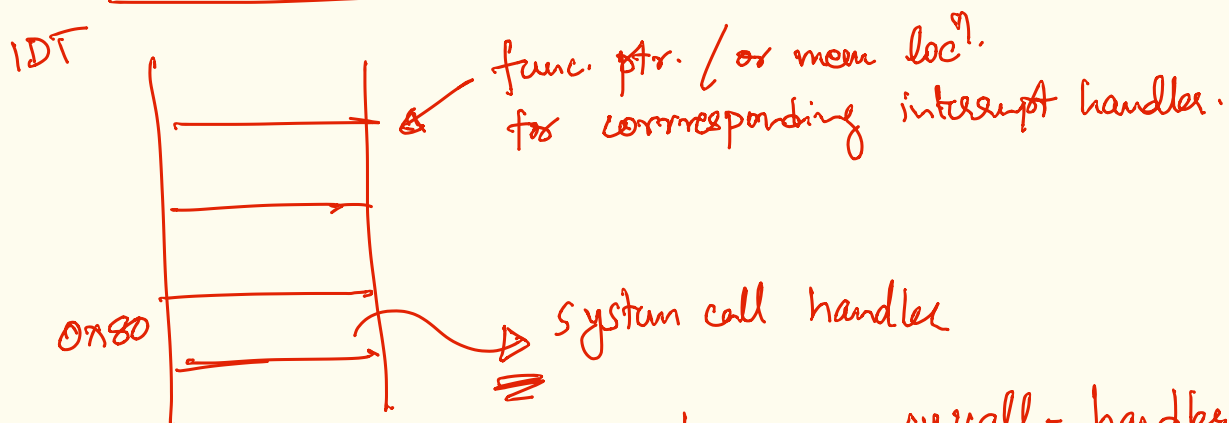 IDT
func. ptr. / or mem locⁿ.
for corresponding interrupt handler.
0x80
system call handler
syscall - handler